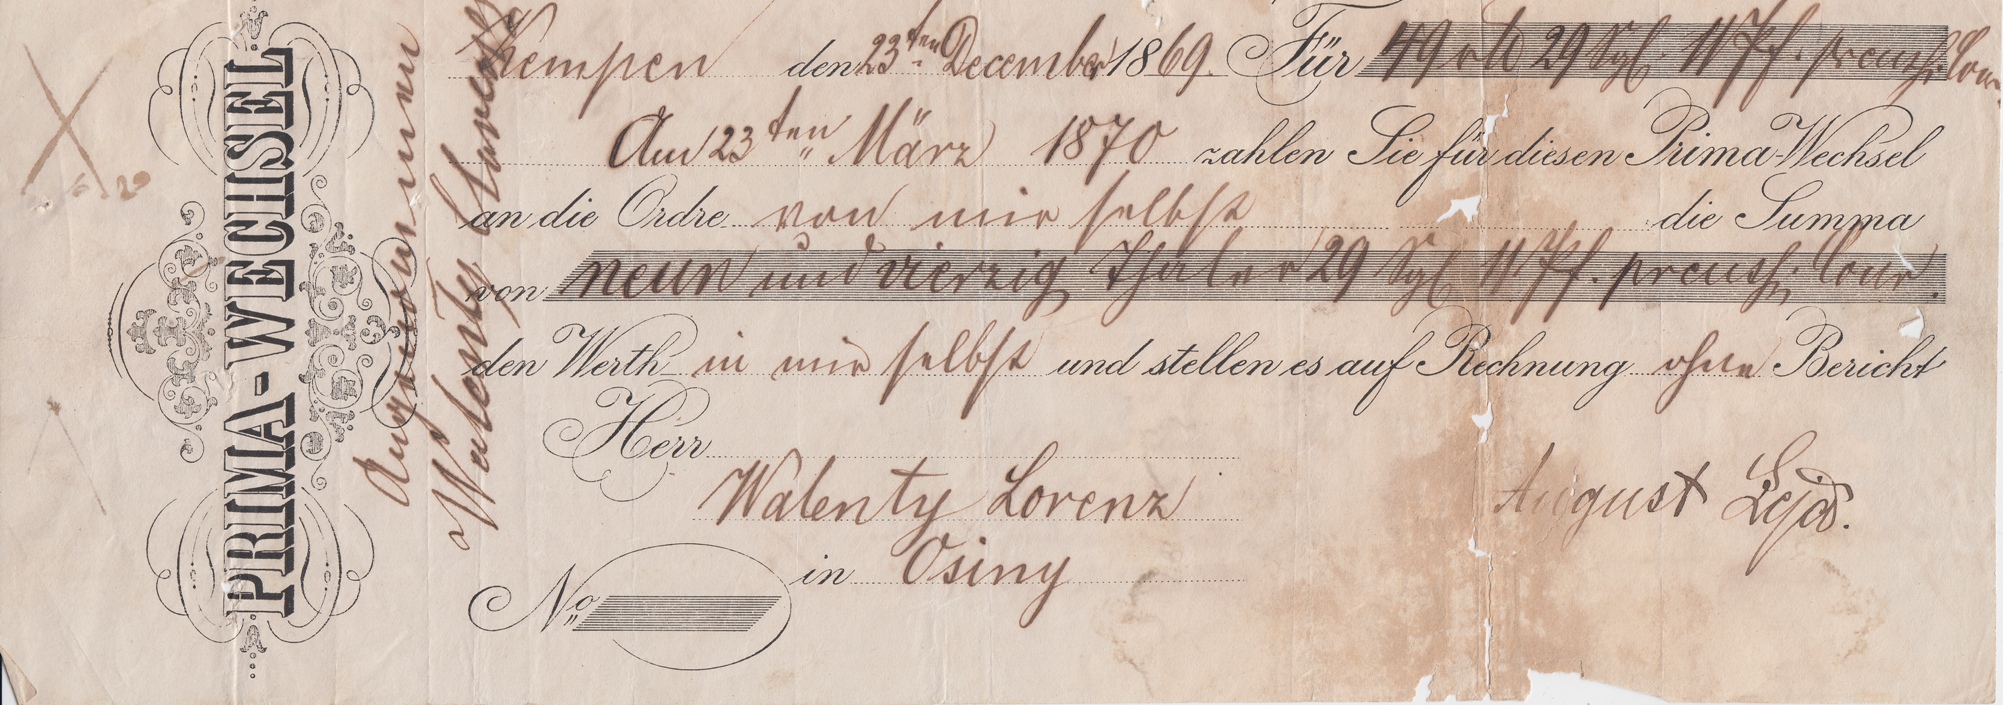 PRIMA-WECHSEL
Angenommen
Walenty Lorenz
Kempen den 23ten December 1869. Für 49 rtl 29 Sgl. 11 Pf. preuss. Cour.
Am 23ten März 1870 zahlen Sie für diesen Prima-Wechsel
an die Ordre von mir selbst die Summa
von neun und vierzig Thaler 29 Sgl 11 Pf. preuss. Cour.
den Werth in mir selbst und stellen es auf Rechnung ohne Bericht
Herr
Walenty Lorenz
August
in Osiny
No